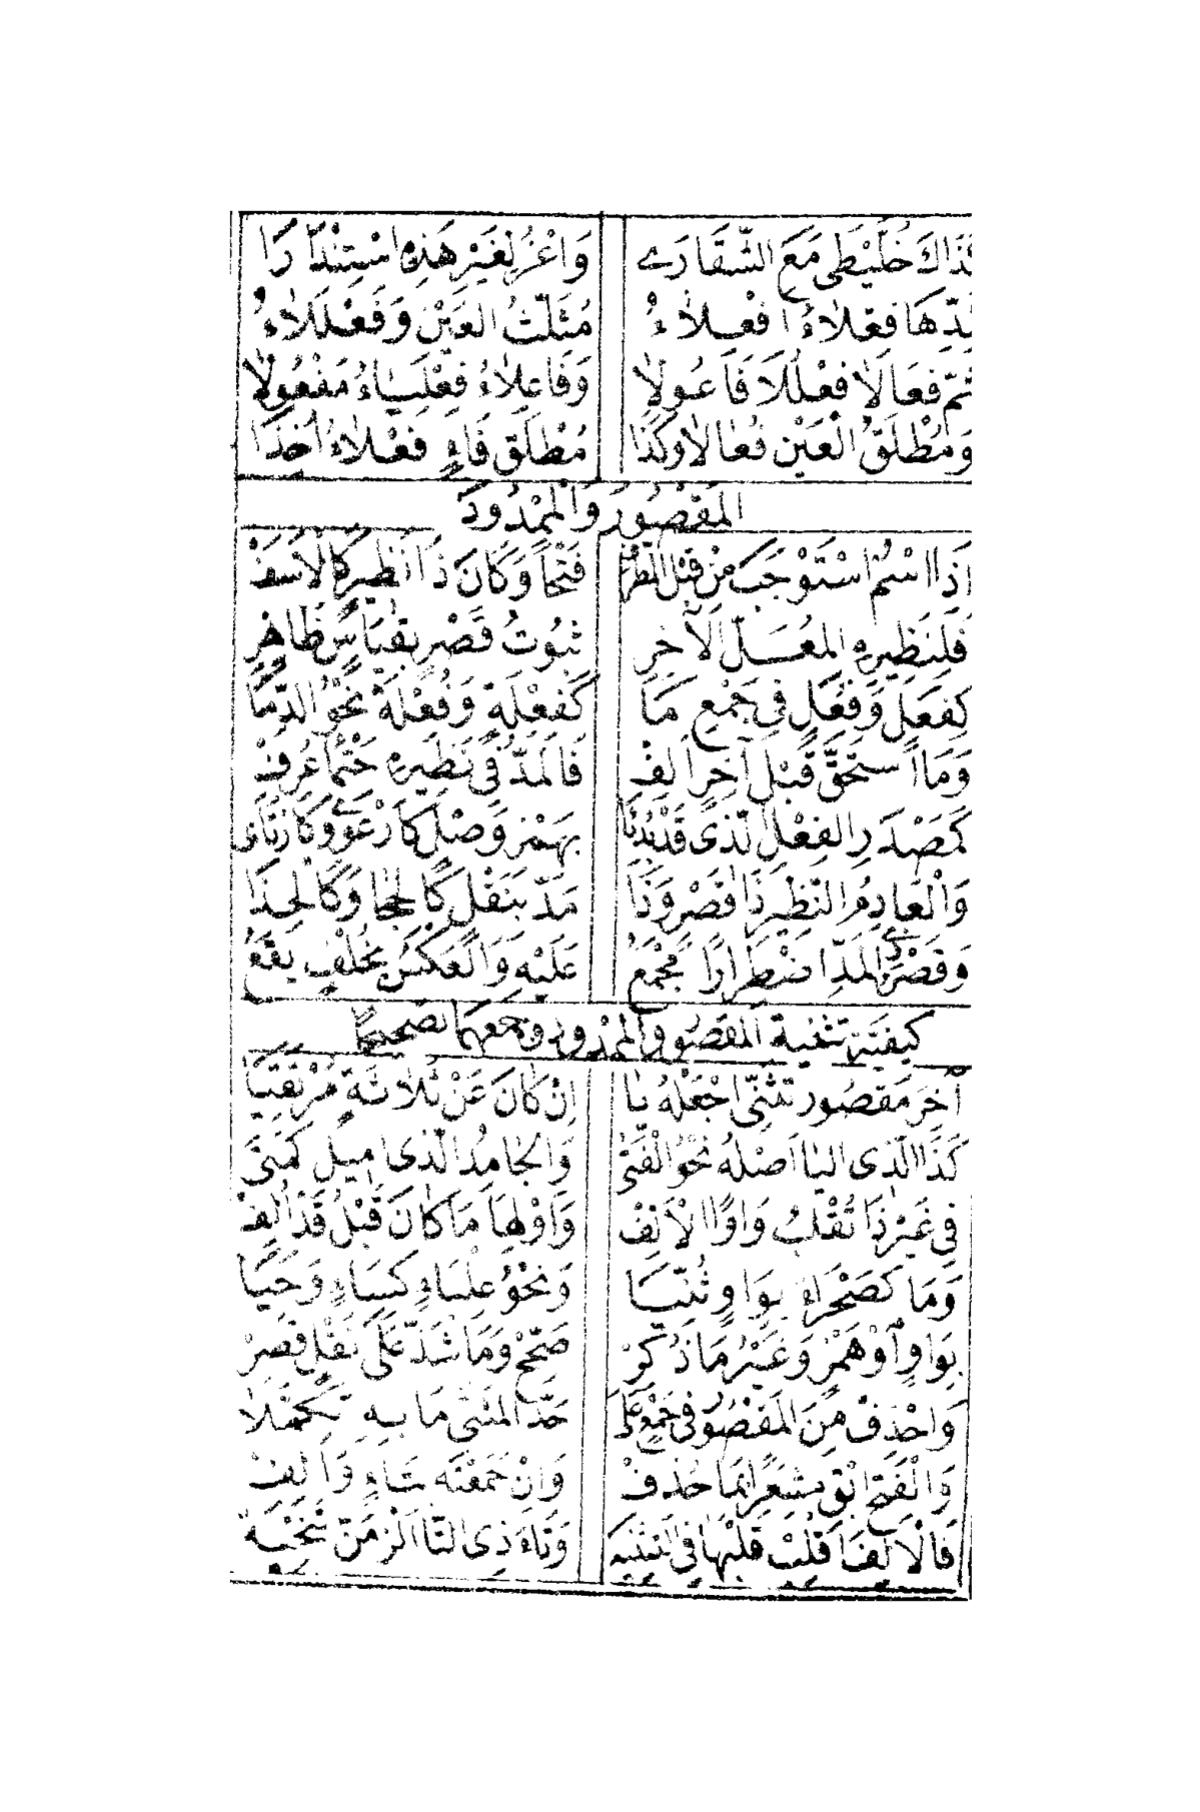 كَذَاكَ خُلَّيْطَى مَعَ الشُّقَّارَى وَاعْزُ لِغَيْرِ هَذِهِ اسْتِنْدَارَا
لِمَدِّهَا فَعْلَاءُ أَفْعِلَاءُ مُثَلَّثُ الْعَيْنِ وَفَعْلَلَاءُ
ثُمَّ فِعَالَا فُعْلُلَا فَاعُولَا وَفَاعِلَاءُ فِعْلِيَاءُ مَفْعُولَا
وَمُطْلَقُ الْعَيْنِ فَعَالَا وَكَذَا مُطْلَقَ فَاءٍ فَعْلَاءُ أُخِذَا
المَقْصُورُ وَالْمَمْدُودُ
إِذَا اسْمٌ اسْتَوْجَبَ مِنْ قَبْلِ الطَّرَفْ فَتْحًا وَكَانَ ذَا نَظِيرٍ كَالْأَسَفْ
فَلِنَظِيرِهِ الْمُعَلِّ الْآخِرِ ثُبُوتُ قَصْرٍ بِقِيَاسٍ ظَاهِرِ
كَفِعَلٍ وَفُعَلٍ فِي جَمْعِ مَا كَفِعْلَةٍ وَفُعْلَةٍ نَحْوُ الدُّمَى
وَمَا اسْتَحَقَّ قَبْلَ آخِرٍ أَلِفْ فَالْمَدُّ فِي نَظِيرِهِ حَتْمًا عُرِفْ
كَمَصْدَرِ الْفِعْلِ الَّذِي قَدْ بُدِئَا بِهَمْزِ وَصْلٍ كَارْعَوَى وَكَارْتَأَى
وَالْعَادِمُ النَّظِيرِ ذَا قَصْرٍ وَذَا مَدٍّ بِنَقْلٍ كَالْحِجَا وَكَالْحِذَا
وَقَصْرُ ذِي الْمَدِّ اضْطِرَارًا مُجْمَعُ عَلَيْهِ وَالْعَكْسُ بِخُلْفٍ يَقَعُ
كيفية تثنية المقصور والممدود وجمعهما تصحيحًا
آخِرَ مَقْصُورٍ تُثَنِّي اجْعَلْهُ يَا إِنْ كَانَ عَنْ ثَلَاثَةٍ مُرْتَقِيَا
كَذَا الَّذِي الْيَا أَصْلُهُ نَحْوُ الْفَتَى وَالْجَامِدُ الَّذِي أُمِيلَ كَمَتَى
فِي غَيْرِ ذَا تُقْلَبُ وَاوًا الْأَلِفْ وَأَوْلِهَا مَا كَانَ قَبْلُ قَدْ أُلِفْ
وَمَا كَصَحْرَاءَ بِوَاوٍ ثُنِّيَا وَنَحْوُ عِلْبَاءٍ كِسَاءٍ وَحَيَا
بِوَاوٍ أَوْ هَمْزٍ وَغَيْرَ مَا ذُكِرْ صَحِّحْ وَمَا شَذَّ عَلَى نَقْلٍ قُصِرْ
وَاحْذِفْ مِنَ الْمَقْصُورِ فِي جَمْعٍ عَلَى حَدِّ الْمُثَنَّى مَا بِهِ تَكَمَّلَا
وَالْفَتْحَ أَبْقِ مُشْعِرًا بِمَا حُذِفْ وَإِنْ جَمَعْتَهُ بِتَاءٍ وَأَلِفْ
فَالْأَلِفَ اقْلِبْ قَلْبَهَا فِي التَّثْنِيَهْ وَتَاءَ ذِي التَّا أَلْزِمَنَّ تَنْحِيَهْ